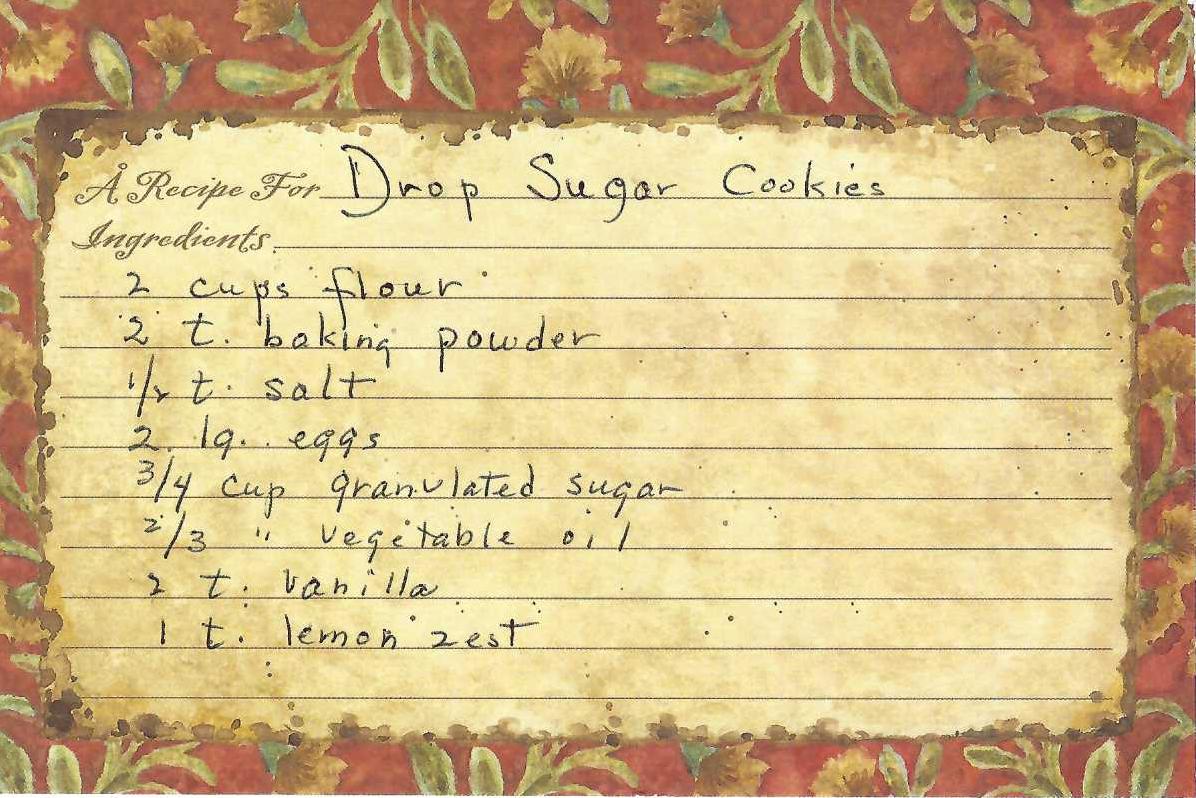 A Recipe For Drop Sugar Cookies
Ingredients
2 cups flour
2 t. baking powder
1/2 t. salt
2 lg. eggs
3/4 cup granulated sugar
2/3 " vegetable oil
2 t. vanilla
1 t. lemon zest